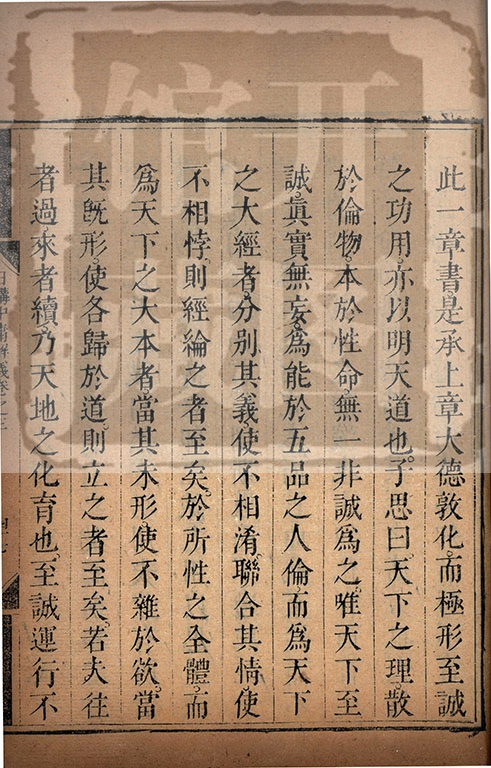 此一章書是承上章大德敦化而極形至誠
之功用亦以明天道也子思曰天下之理散
於倫物本於性命無一非誠為之唯天下至
誠真實無妄為能於五品之人倫而為天下
之大經者分別其義使不相淆聯合其情使
不相悖則經綸之者至矣於所性之全體而
為天下之大本者當其未形使不雜於欲當
其旣形使各歸於道則立之者至矣若夫往
者過來者續乃天地之化育也至誠運行不
日講中庸解義卷之三